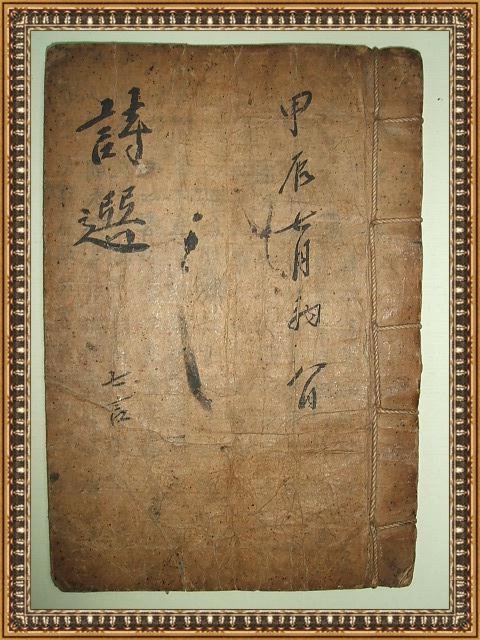 甲辰七月初八日
詩選
七言